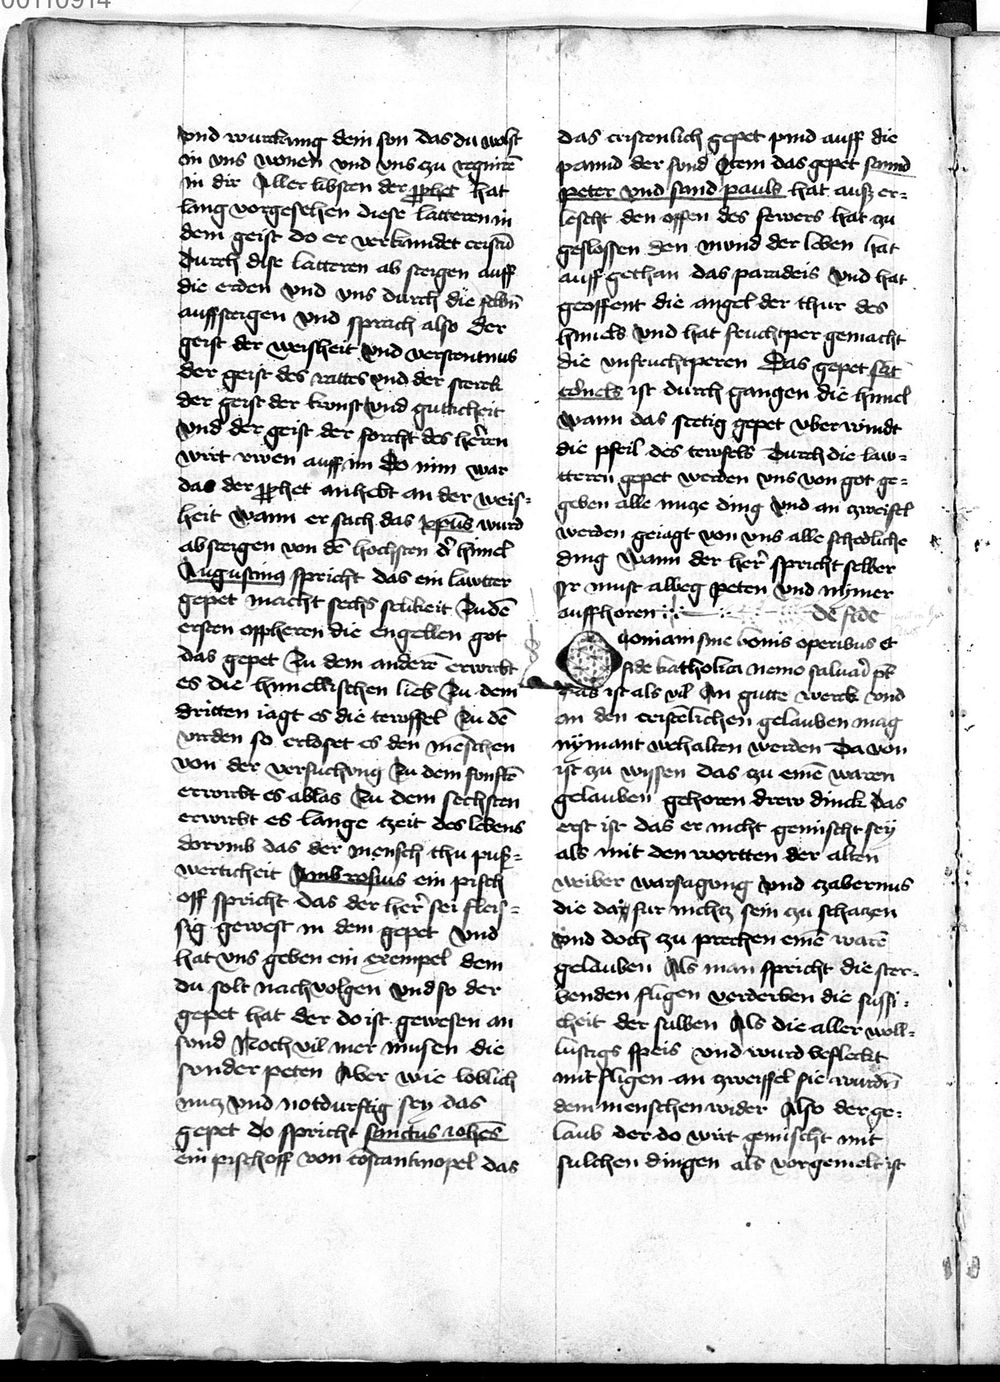 00110914
vnd wurckung dein son das du wolst
in vns wonen vnd vns zu regnirē
in dir Aller libsten der ꝓphet hat
lang vorgesehen diese latteren in
dem geist do er verkundet cristū
durch dise latteren ab steigen auff
die erden vnd vns durch die selbn̄
auffsteigen vnd sprach also der
geist der weisheit vnd verstentnus
der geist des rattes vnd der sterck
der geist der kunst vnd gutticheit
vnd der geist der forcht des herren
wirt rwen auff im Do nim war
das der ꝓphet anhebt an der weis-
heit wann er sach das xp̄us wurd
absteigen von dē hochsten d' himel
Augustinus spricht das ein lawtter
gepet macht sechs selikeit Zu dē
ersten offpheren die engellen got
das gepet Zu dem anderē erwirbt
es die himellischen lieb Zu dem
dritten iagt es die tewffel Zu dē
virden so erloset es den menschen
von der versuchung Zu dem funftē
erwirbt es ablas Zu dem sechsten
erwirbt es lange zeit des lebens
dorvmb das der mensch thu puß-
werticheit Ambrosius ein pisch
off spricht das der her' sei fleis-
sig gewest in dem gepet vnd
hat vns geben ein exempel dem
du solt nachvolgen vnd so der
gepet hat der do ist gewesen an
sund Noch vil mer musen die
sunder peten Aber wie loblich
nucz vnd notdurftig sey das
gepet do spricht sanctus iohēs
ein pischoff von costantinopel das
das cristenlich gepet pind auff die
pannd der sund Item das gepet sannd
peter vnd sand pauls hat auß er-
lescht den offen des fewers hat zu
geslossen den mund der leben hat
auff gethan das paradeis vnd hat
geoffent die angel der thur des
himels vnd hat fruchtper gemacht
die vnfruchtperen Das gepet
ist durch gangen die himel
wann das stetig gepet vberwindt
die pfeil des tewfels Durch die law-
tteren gepet werden vns von got ge-
geben alle nucze ding vnd an zweifel
werden geiagt von vns alle schedliche
ding wann der her' spricht selber
Ir must alweg peten vnd nymer
auffhoren
de fide
Quoniam sine bonis operibus et
fide katholica nemo saluari pt̄
das ist als vil An gutte werck vnd
an den cristēlichen gelauben mag
nymant wehalten werden Da von
ist zu wyssen das zu einē waren
gelauben gehoren drew dinck das
erst ist das er nicht gemischt sey
als mit den wortten der alten
weiber warsagung vnd zabernus
die do fur nichcz sein zu schaczen
vnd doch zu prechen einē warē
gelauben Als man spricht die ster-
benden fligen verderben die sussi-
cheit der sulben Als die aller woll-
lustigs speis vnd wurd befleckt
mit fligen an zweiffel sie wurdn̄
dem menschen wider Also der ge-
laub der do wirt gemischt mit
sulchen dingen als vorgemelt ist